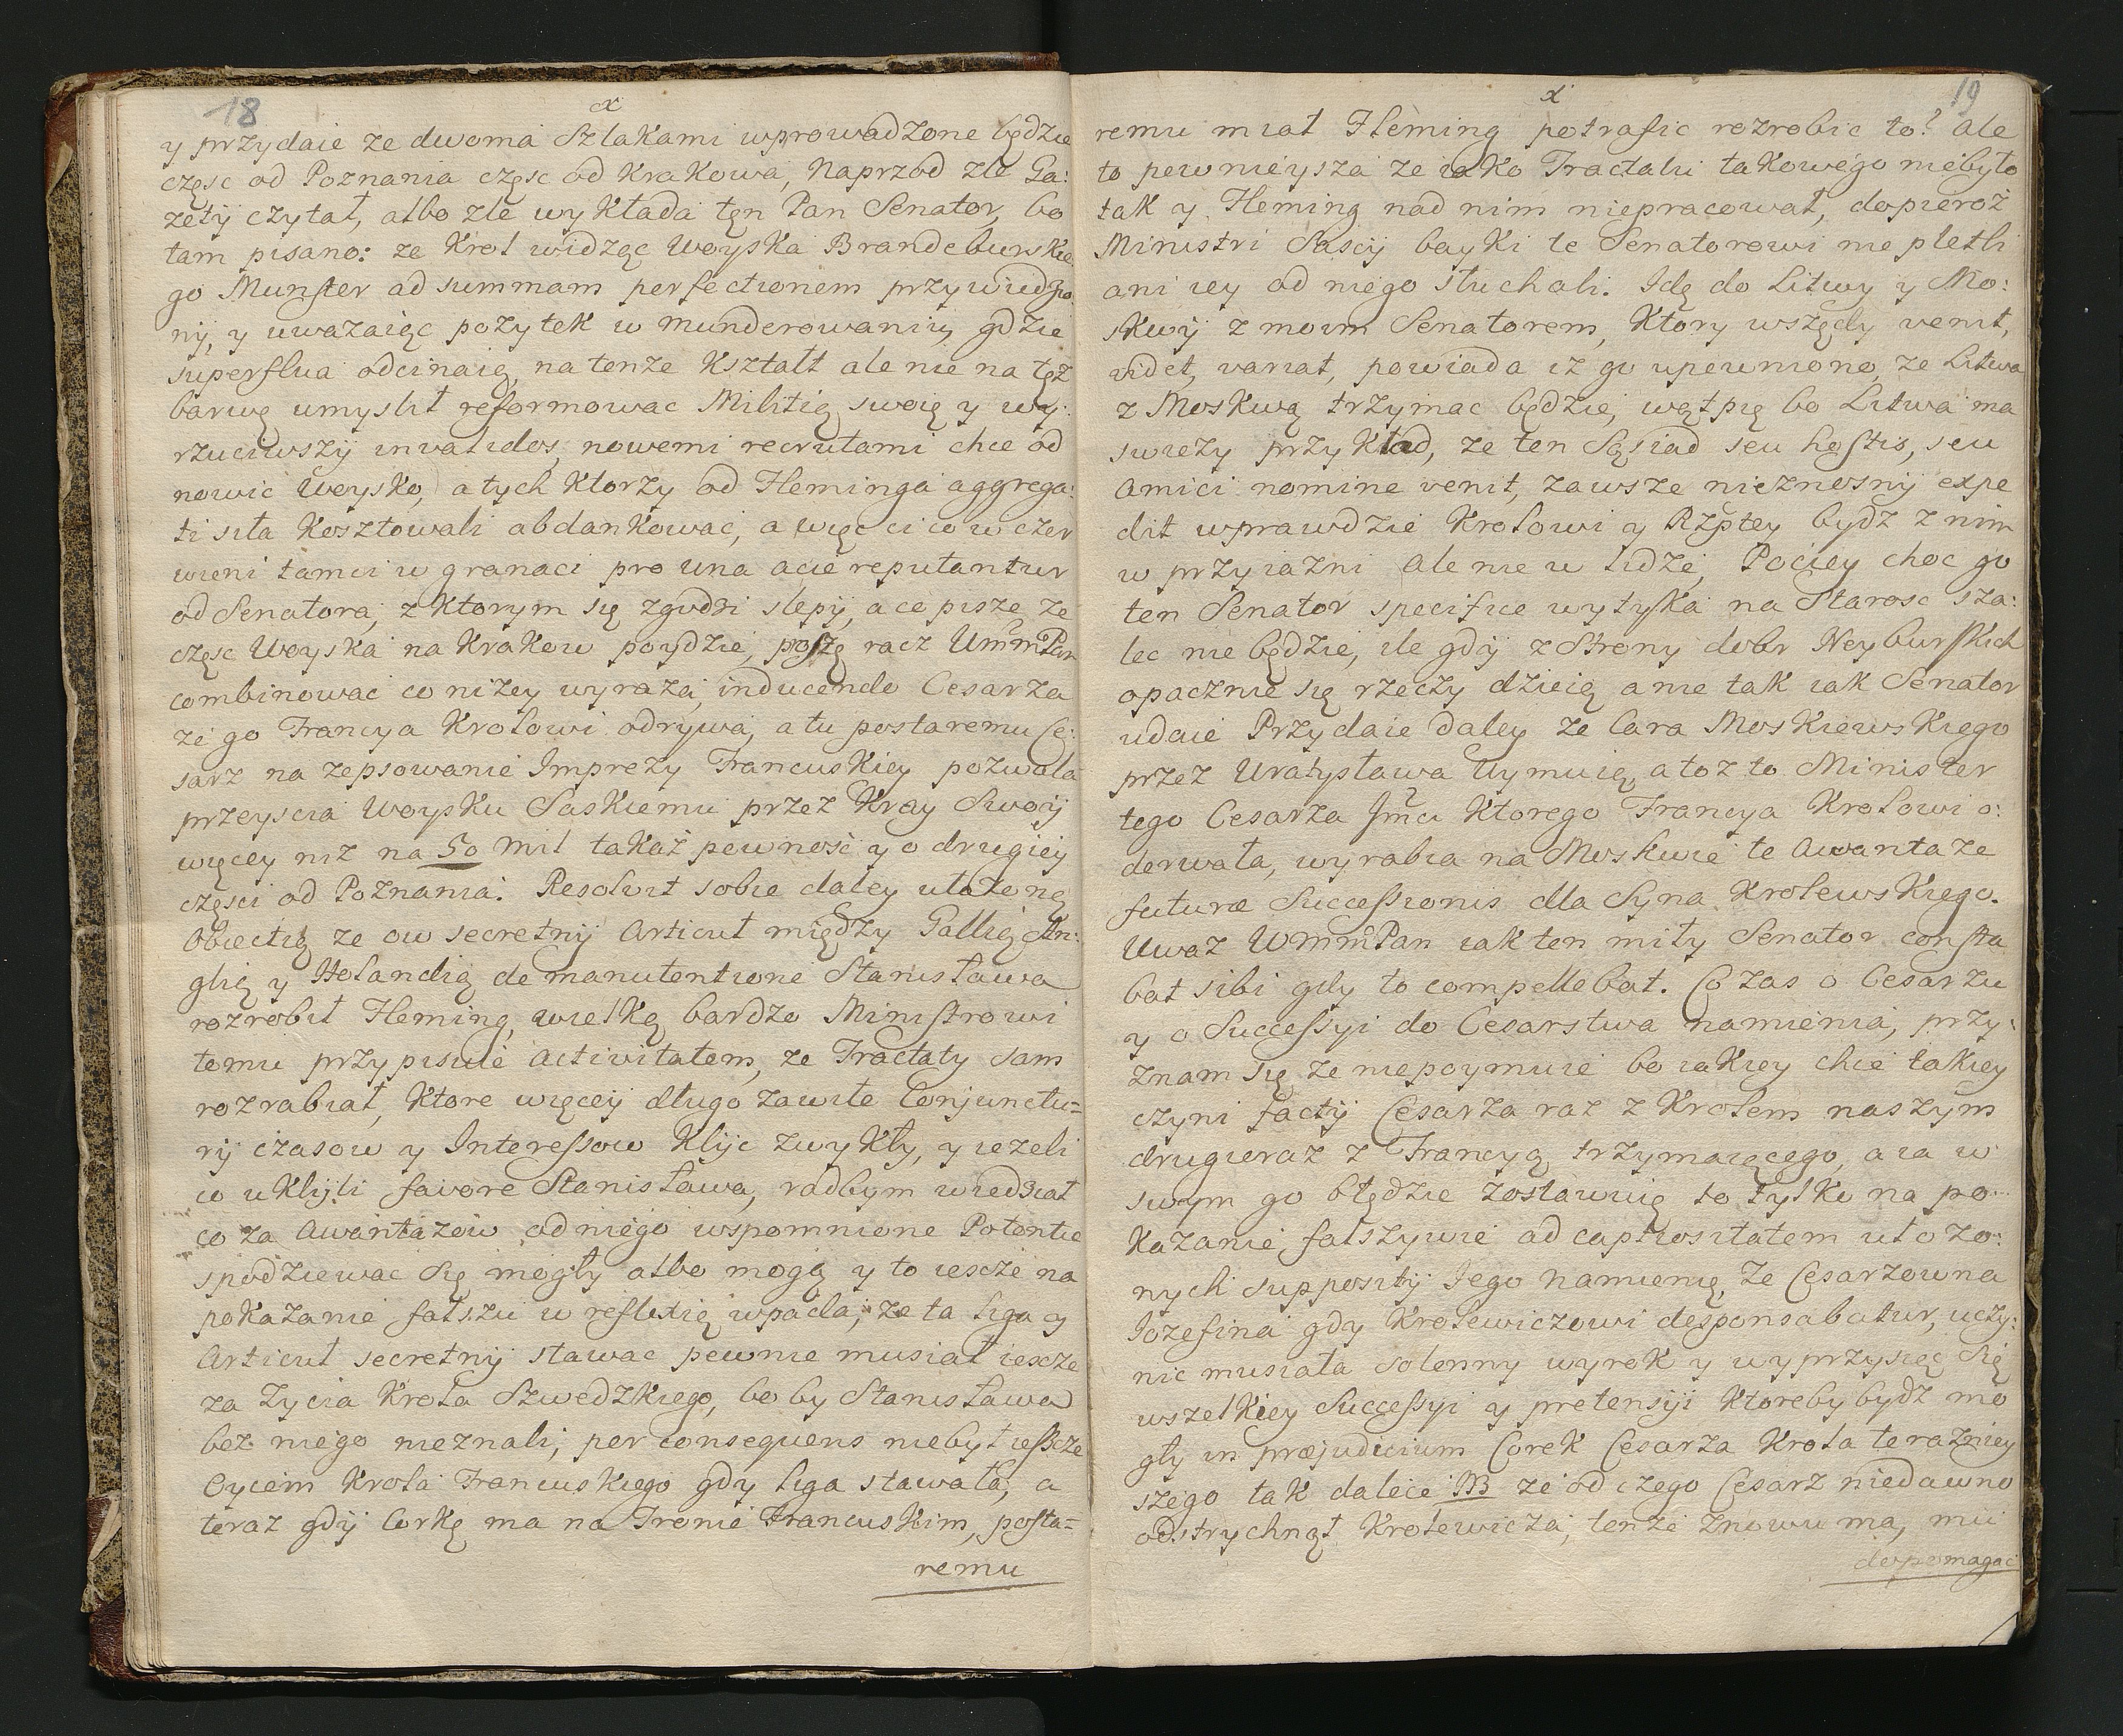 18
x
y przydaie ze dwoma Szlakami wprowadzone będzie
częsc od Poznania częsc od Krakowa, Naprzod zle Ga:
zety czytał, albo zle wykłada ten Pan Senator, bo
tam pisano: ze Krol widząc Woyska Brandeburskie
go Munster ad summam perfectionem przywiedzio
ny, y uwazaiąc pozytek w munderowaniu, gdzie
superflua odcinaią, na tenze Kształt ale nie na tęz
barwę umyslił reformowac Militię swoię y wy:
rzuciwszy invalidos, nowemi recrutami chce od
nowic Woysko, a tych Ktorzy od Heminga aggrega:
ti siła Kosztowali abdankowac, a więc ci co w czer
wieni tamci w granaci pro una acie reputantur
od Senatora, z Ktorym się zgodzi slepy, a co pisze ze
częsc Woyska na Krakow poydzie, proszę racz UmmPan
combinowac co nizey wyraza, inducendo Cesarza
ze go Francya Krolowi odrywa, a tu postaremu Ce:
sarz na zepsowanie Imprezy Francuskiey pozwala
przeyscia Woysku Saskiemu przez Kray Swoy
więcey niz na 50 mil takaz pewnosc y o drugiey
częsci od Poznania. Resolvit sobie daley ułozoną
Obiectię ze ow secretny Articuł między Gallią An:
glią y Holandią de manutentione Stanisława
rozrobił Heming, wielką bardzo Ministrowi
temu przypisuie activitatem, ze Tractaty sam
rozrabiał, Ktore więcey długo zawiłe Conjunctu=
ry czasow y Interessow Klijc zwykły, y iezeli
co uklijli favore Stanisława, radbym wiedział
co za Awantazow od niego wspomnione Potentie
spodziewac się mogły albo mogą y to iescze na
pokazanie fałszu w reflexię wpada, ze ta liga y
Articuł secretny stawac pewnie musiał iescze
za Zycia Krola Szwedzkiego, bo by Stanisława
bez niego nieznali, per consequens niebył iescze
Oycem Krola Francuskiego gdy liga stawała, a
teraz gdy Corkę ma na Tronie Francuskim, posta=
remu
19
x
remu miał Fleming potrafic rozrobic to? ale
to pewnieysza ze iako Tractatu takowego niebyło
tak y Heming nad nim niepracował, dopieroz
Ministri Sascy bayki te Senatorowi nie pletli
ani iey od niego słuchali. Idę do Litwy y Mo:
skwy z moim Senatorem, Ktory wszędy venit,
videt, variat, powiada iz go upewniono, ze Litwa
z Moskwą trzymac będzie, wątpię bo Litwa ma
swiezy przykład, ze ten Sąsiad seu hostis, seu
amici nomine venit, zawsze nieznosny expe
dit wprawdzie Krolowi y Rzptey bydz z nim
w przyiazni ale nie w lidze, Pociey choc go
ten Senator specifice wytyska na Starosc sza:
lec nie będzie, ile gdy z Strony dobr Neyburskich
opacznie się rzeczy dzieią a nie tak iak Senator
udaie Przydaie daley ze Cara Moskiewskiego
przez Uratysława Uymuią, a toz to Minister
tego Cesarza Jmci Ktorego Francya Krolowi o:
derwała, wyrabia na Moskwie te Awantaze
futuræ Successionis dla Syna Krolewskiego.
Uwaz WmmPan iak ten miły Senator consta
bat sibi gdy to compellebat. Co zas o Cesarzu
y o Successyi do Cesarstwa namienia, przy:
znam się ze niepoymuie bo iakiey chce takiey
czyni facty Cesarza raz z Krolem naszym
drugi raz z Francyą trzymaiącego, a ia w
swym go błędzie zostawuię to tylko na po:
kazanie fałszywie ad captiositatem ułozo:
nych supposity Jego namienię, Ze Cesarzowna
Jozefina gdy Krolewiczowi desponsabatur, uczy:
nic musiała solenny wyrok y wyprzysiąc się
wszelkiey Successyi y pretensyi Ktoreby bydz mo
gły in præjudicium Corek Cesarza Krola terazniey
szego tak dalece NB ze od czego Cesarz niedawno
odstrychnął Krolewicza, tenze znowu ma, mu
dopomagac